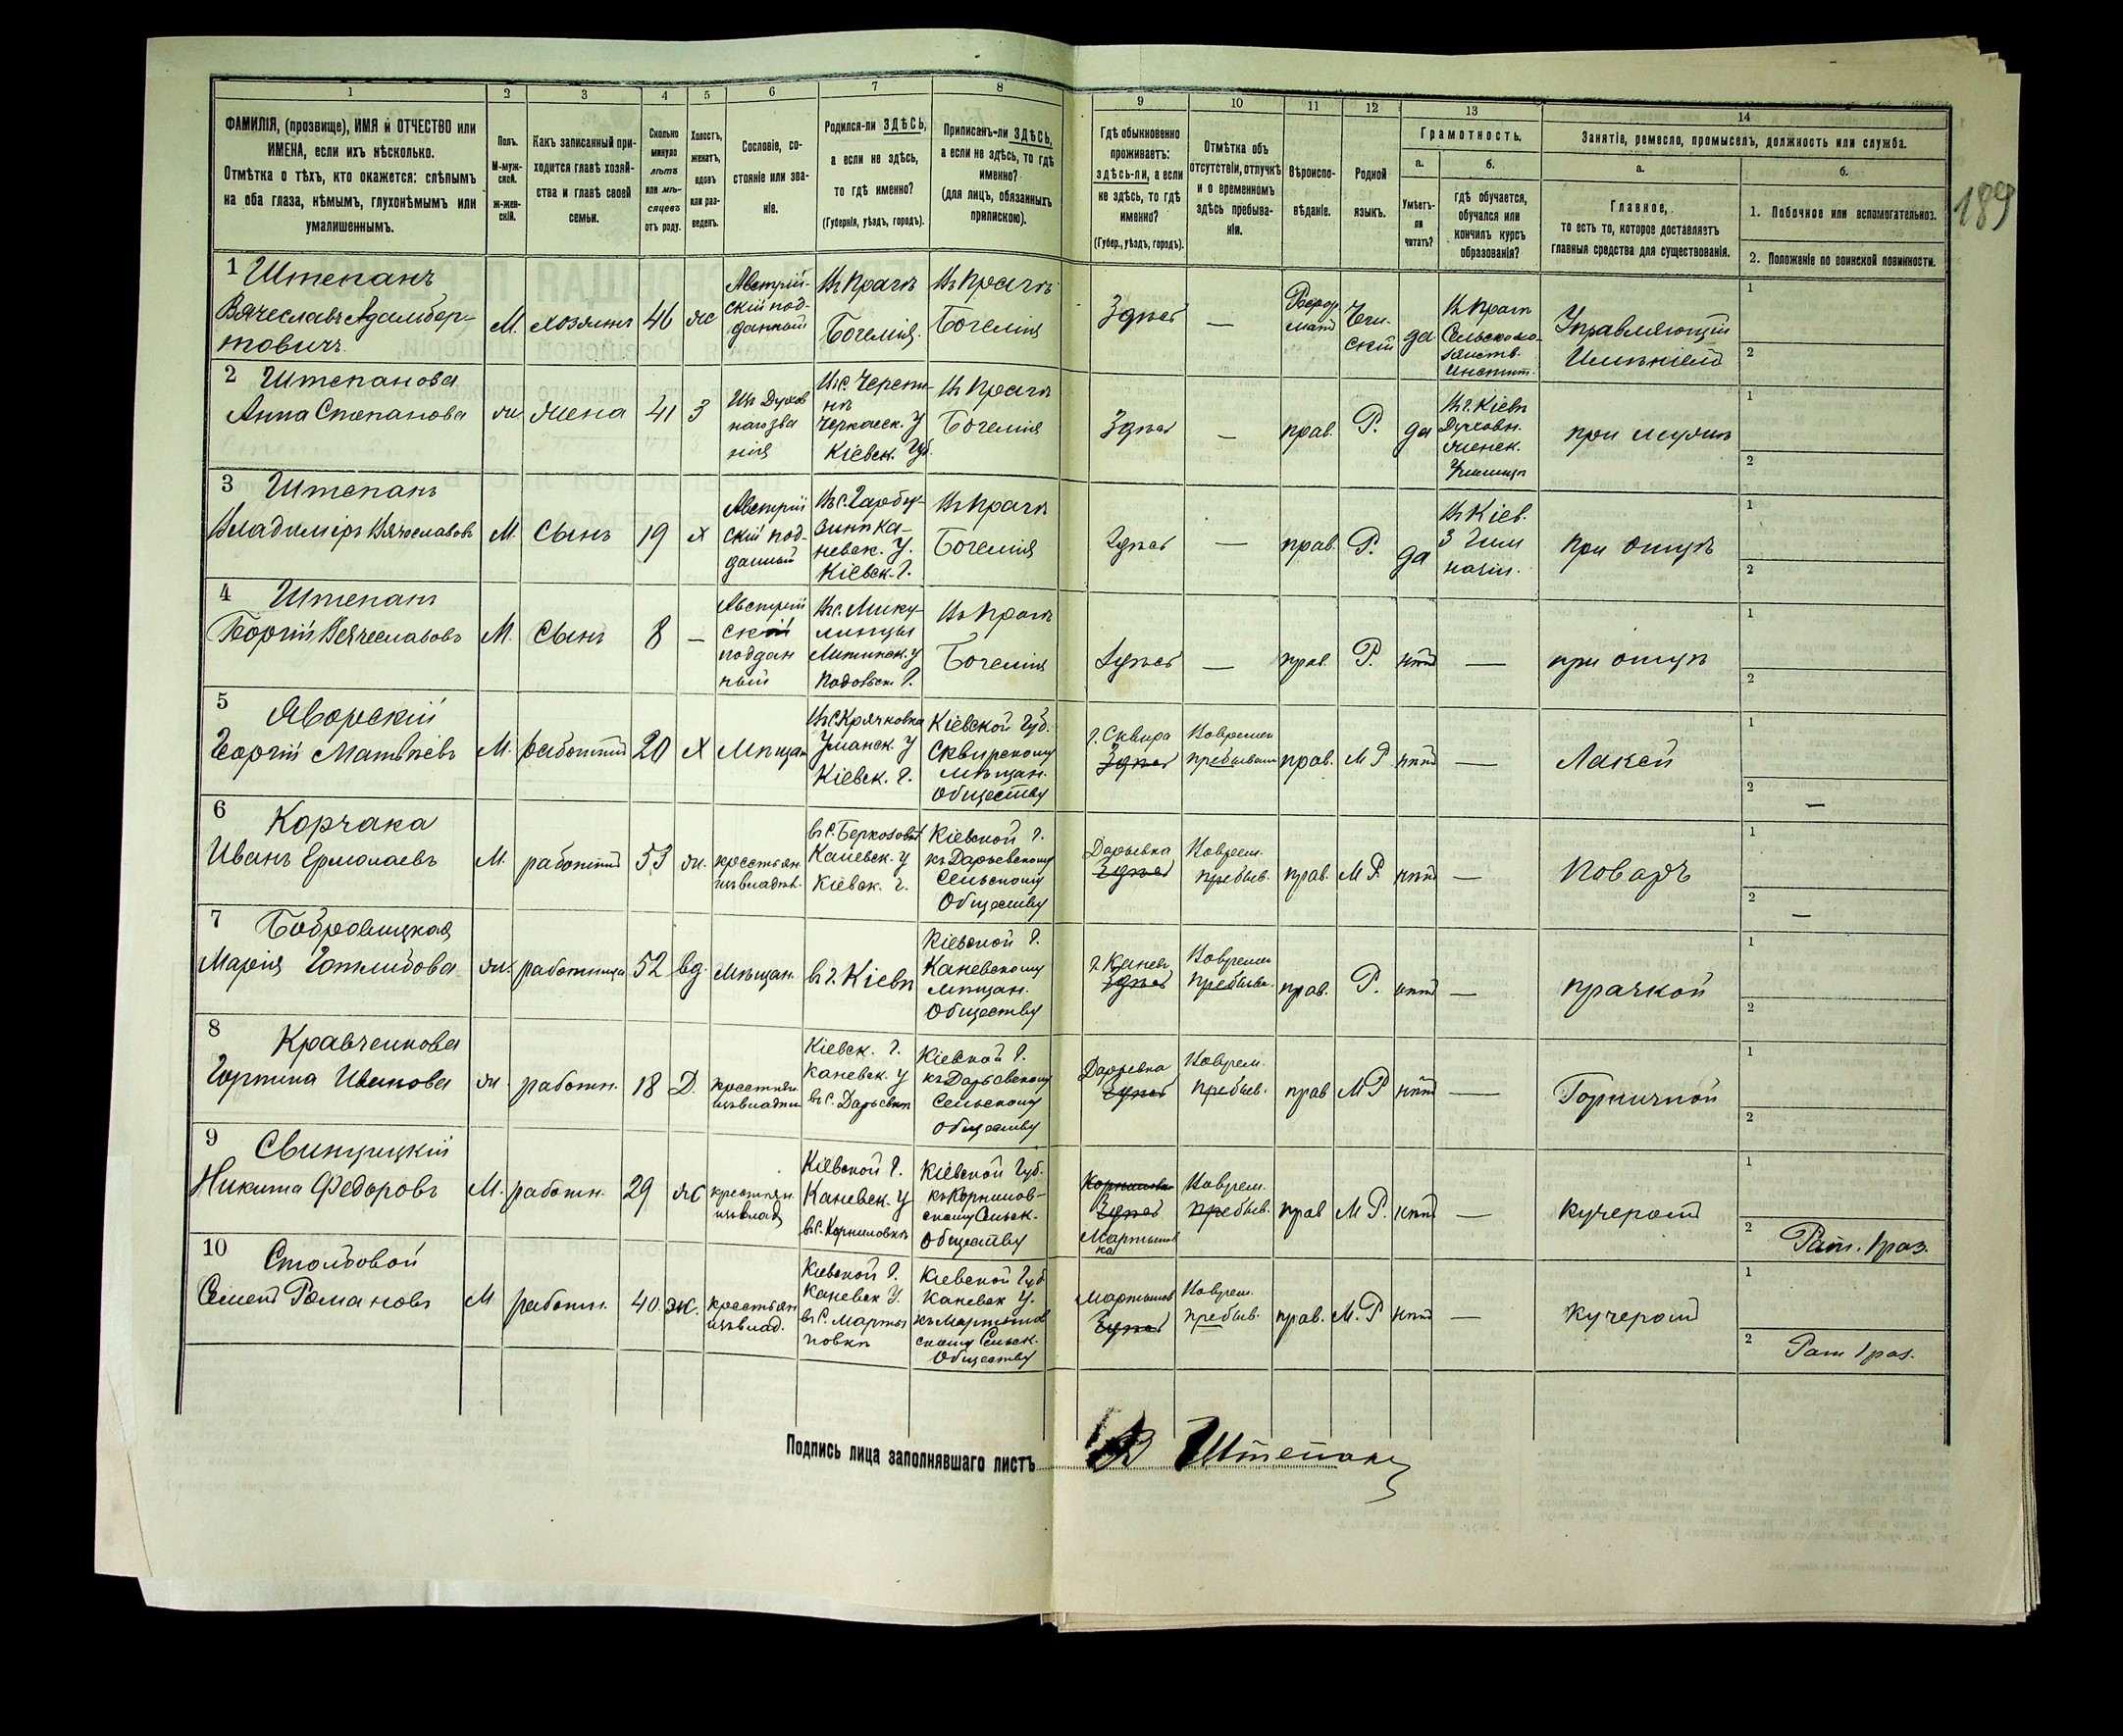 189
1
2
3
4
5
6
7
8
9
10
11
12
13
14
ФАМИЛІЯ, (прозвище), ИМЯ и ОТЧЕСТВО или
ИМЕНА, если ихъ нѣсколько.
Отмѣтка о тѣхъ, кто окажется: слѣпымъ
на оба глаза, нѣмымъ, глухонѣмымъ или
умалишеннымъ.
Полъ.
М-муж-
ской.
Ж-жен-
скій.
Какъ записанный при-
ходится главѣ хозяй-
ства и главѣ своей
семьи.
Сколько
минуло
лѣтъ
или мѣ-
сяцевъ
отъ роду.
Холостъ,
женатъ,
вдовъ
или раз-
веденъ.
Сословіе, со-
стояніе или зва-
ніе.
Родился-ли ЗДѢСЬ,
а если не здѣсь,
то гдѣ именно?
(Губернія, уѣздъ, городъ).
Приписанъ-ли ЗДѢСЬ,
а если не здѣсь, то гдѣ
именно?
(для лицъ, обязанныхъ
припискою).
Гдѣ обыкновенно
проживаетъ:
здѣсь-ли, а если
не здѣсь, то гдѣ
именно?
(Губер., уѣздъ, городъ).
Отмѣтка объ
отсутствіи, отлучкѣ
и о временномъ
здѣсь пребыва-
ніи.
Вѣроиспо-
вѣданіе.
Родной
языкъ.
Грамотность.
а.
Умѣетъ-
ли
читать?
б.
гдѣ обучается,
обучался или
кончилъ курсъ
образованія?
Занятіе, ремесло, промыселъ, должность или служба.
а.
Главное,
то есть то, которое доставляетъ
главныя средства для существованія.
б.
1. Побочное или вспомогательное.
2. Положеніе по воинской повинности.
1 Штепанъ
Вячеславъ Адальбер-
товичъ
М.
хозяинъ
46
ж
Австрій-
скій под-
данный
Въ Прагѣ
Богемія.
Въ Прагѣ
Богемія
Здѣсь
—
Чеш-
скій
да
Въ Прагѣ
Сельскохо-
зяйств.
Институт.
Управляющій
Имѣніемъ
1
2
2 Штепанова
Анна Степанова
ж
жена
41
З
Изъ Духов
наго зва
нія
Въ с. Черепи-
нѣ
Черкасск. У
Кіевск. Губ.
Въ Прагѣ
Богемія
Здѣсь
—
прав.
Р.
да
Въ г. Кіевѣ
Духовн.
женск.
Училищѣ
при мужѣ
1
2
3 Штепанъ
Владиміръ Вячеславовъ
М.
Сынъ
19
х
Австрій
скій под-
данный
Въ с. Гарбу-
зинѣ Ка-
невск. У.
Кіевск. Г.
Въ Прагѣ
Богемія
Здѣсь
—
прав.
Р.
да
Въ Кіев.
3 Гим
назіи.
При отцѣ
1
2
4 Штепанъ
Георгій Вячеславовъ
М.
Сынъ
8
—
Австрій
скій
поддан
ный
Въ с. Мику
линцы
Литинск. у
Подольск. Г.
Въ Прагѣ
Богемія
Здѣсь
—
прав.
Р.
нѣтъ
—
при отцѣ
1
2
5 Яворскій
Георгій Матвѣевъ
М.
работникъ
20
Х
Мѣщан
Въ С. Крячковка
Уманск. У
Кіевск. г.
Кіевской Губ.
Сквирскому
мѣщан.
обществу
г. Сквира
Здѣсь
Воврем
пребыван
прав.
М Р
нѣтъ
—
Лакей
1
2 —
6 Корчака
Иванъ Ермолаевъ
М.
работникъ
53
ж.
крестьян.
изъ владѣл.
въ С. Беркозовкѣ
Каневск. у
Кіевск. г.
Кіевской г.
къ Дарьевскому
Сельскому
Обществу
Дарьевка
Здѣсь
Воврем.
пребыв.
прав.
М Р.
нѣтъ
—
Поваръ
1
2 —
7 Бобровицкая
Марія Готлибова
ж.
работница
52
вд.
Мѣщан.
въ г. Кіевѣ
Кіевской г.
Каневскому
мѣщан.
обществу
г. Каневъ
Здѣсь
Воврем
пребыв.
прав.
Р.
нѣтъ
—
прачкой
1
2
8 Кравченкова
Горпина Иванова
ж.
работн.
18
Д.
крестьян.
изъ владѣл
Кіевск. г.
Каневск. у
въ С. Дарьевкѣ
Кіевской г.
къ Дарьевскому
Сельскому
обществу
Дарьевка
Здѣсь
Воврем.
пребыв.
прав
М Р
нѣтъ
—
Горничной
1
2
9 Свинцицкій
Никита Федоровъ
М.
работн.
29
ж
крестьян.
изъ влад
Кіевской г.
Каневск. У
въ С. Корниловкѣ
Кіевской Губ.
къ Корнилов-
скому Сельск.
обществу
Здѣсь
Мартынов
ка
Воврем.
пребыв.
прав
М Р.
нѣтъ
—
кучеромъ
1
2 Рат. 1 раз.
10 Столбовой
Семенъ Романовъ
М
работн.
40.
ж.
крестьян
изъ влад.
Кіевской г.
Каневск У.
въ С. Марты
новкѣ
Кіевской Губ
Каневск У.
къ Мартынов
скому Сельск.
обществу
Мартынов
Здѣсь
Воврем.
пребыв.
прав.
М. Р
нѣтъ
—
кучеромъ
1
2 Рат 1 раз.
Подпись лица заполнявшаго листъ
В Штепанъ